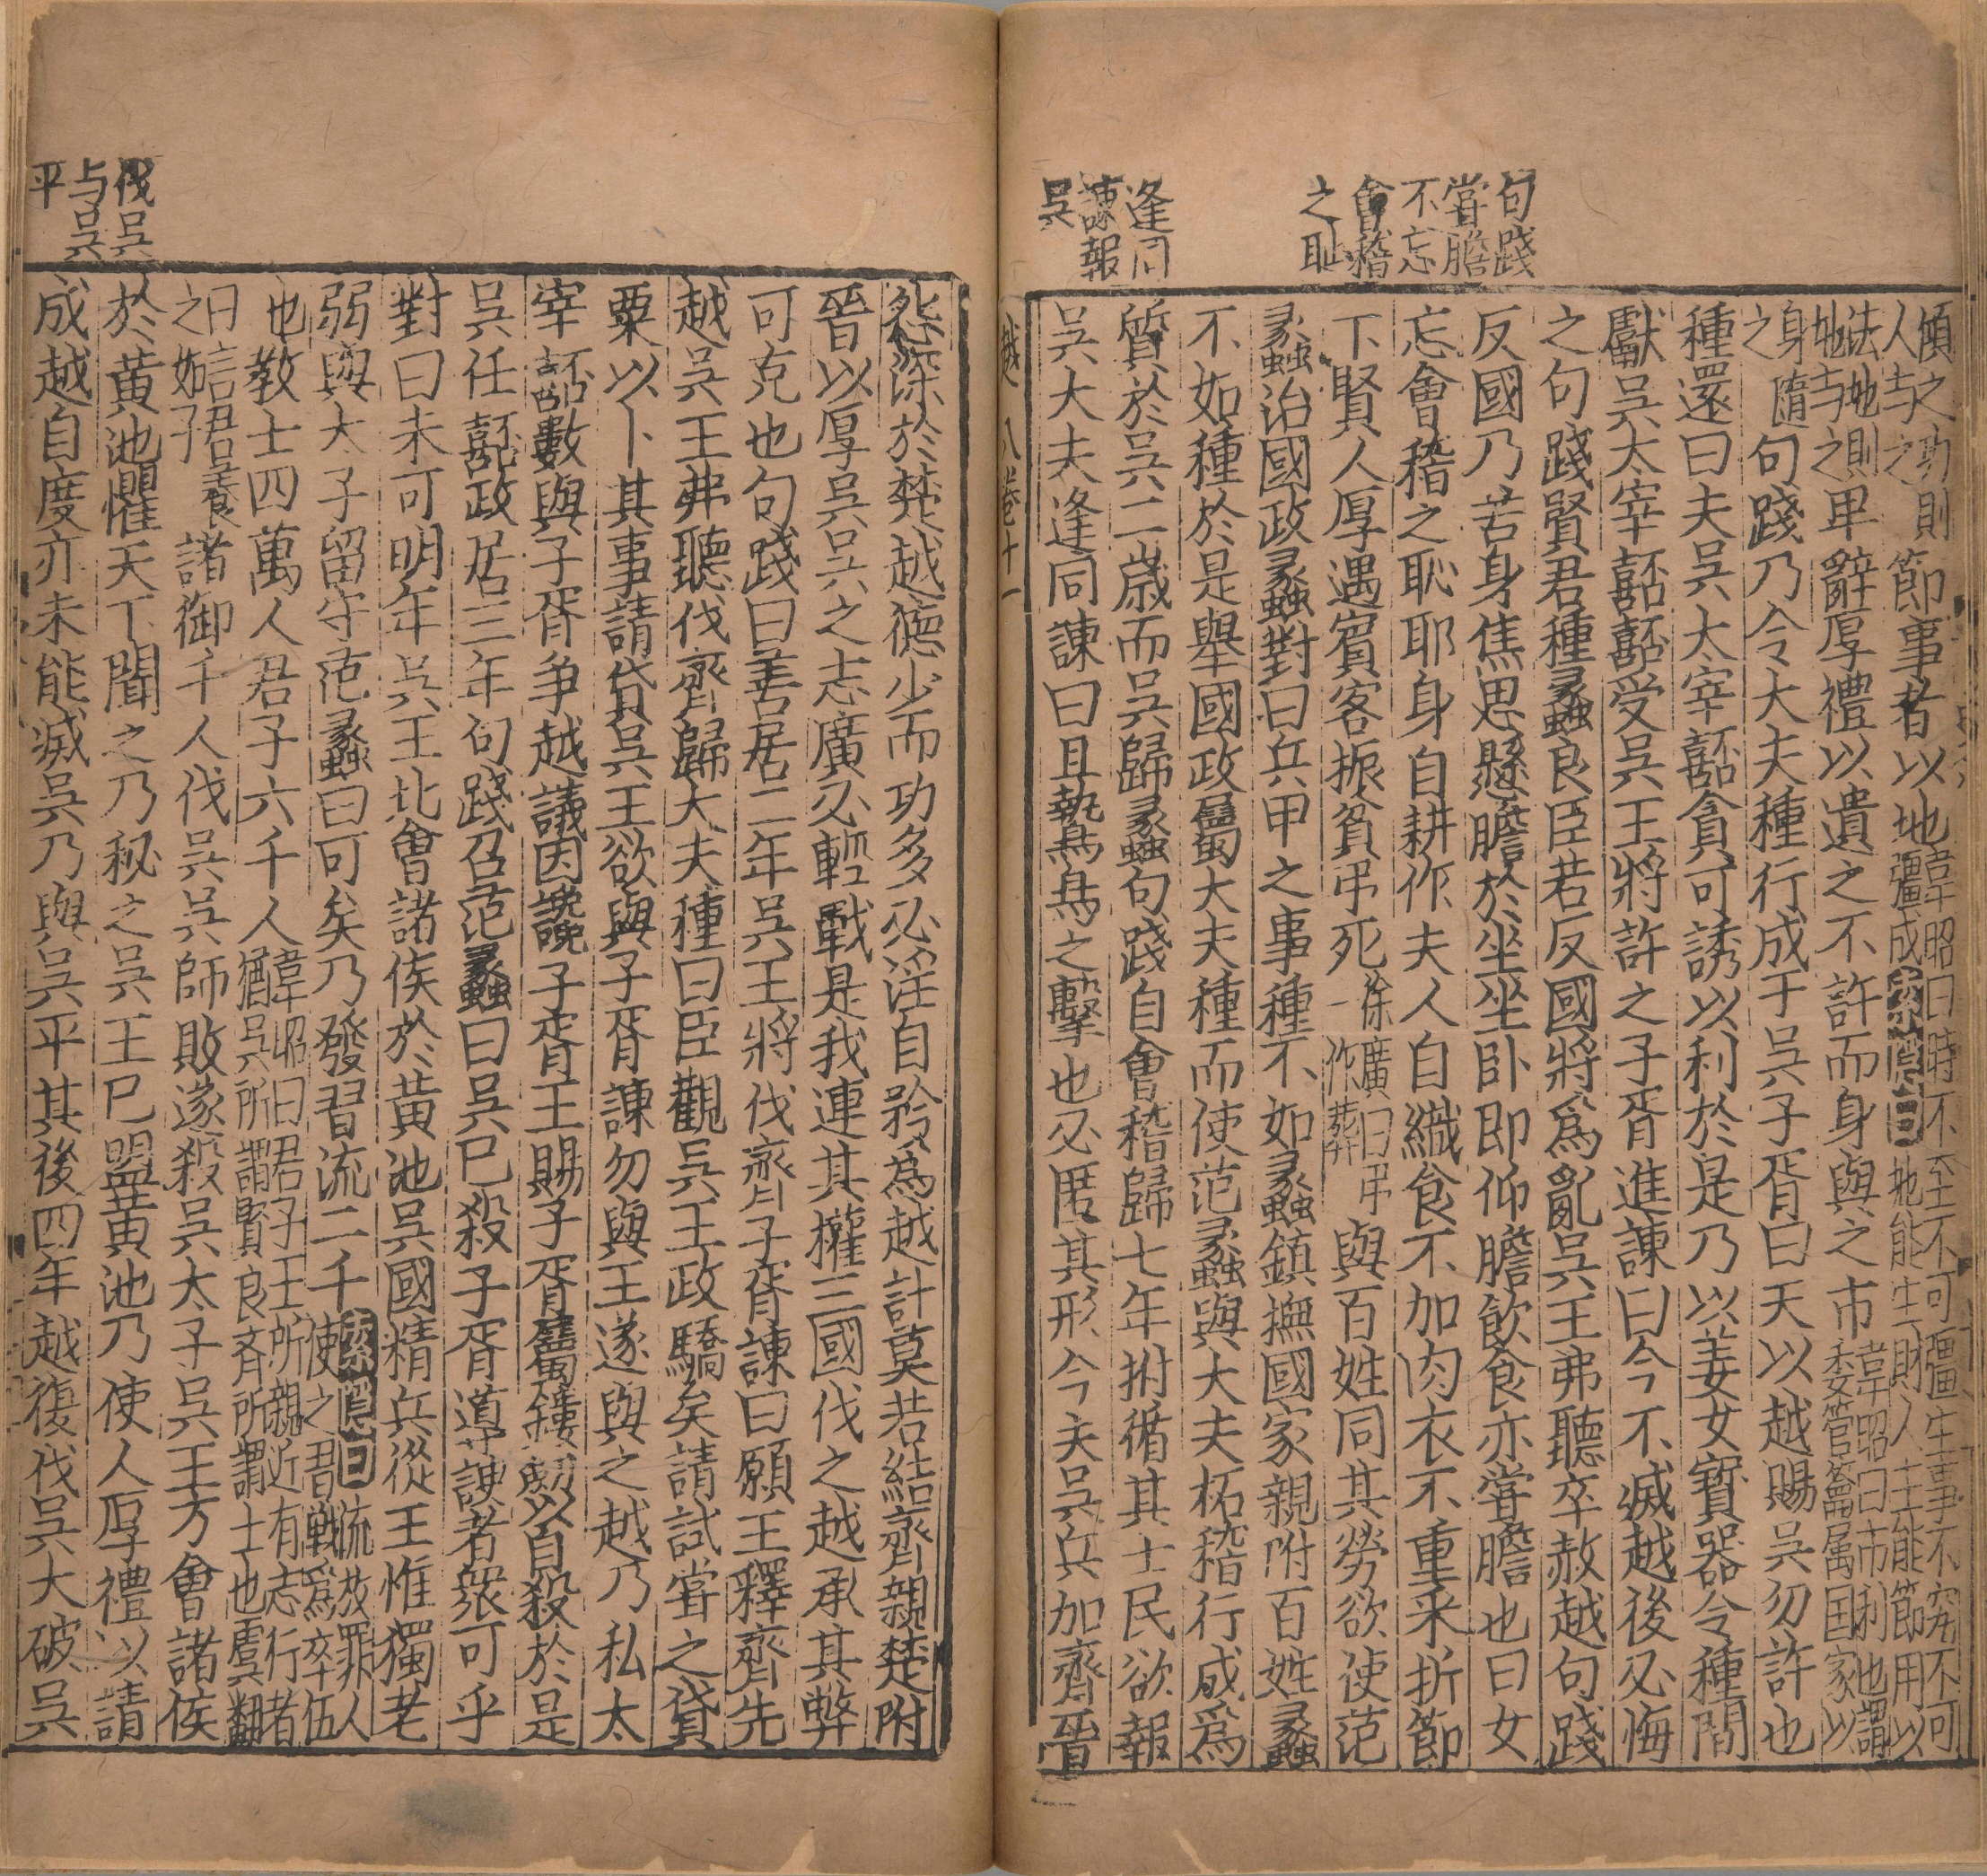 句踐
嘗膽
不忘
會稽
之恥
逢同
諫報
吳
傾之功則
人与之
節事者以地
韋昭曰時不至不可彊生事不究不可
彊成索隱曰地能生財人主能節用以
法地則
地与之
卑辭厚禮以遺之不許而身與之市
韋昭曰市利也謂
委管籥属国家以
身隨
之
句踐乃令大夫種行成于吳子胥曰天以越賜吳勿許也
種還曰夫吳太宰嚭貪可誘以利於是乃以美女寶器令種間
獻吳太宰嚭嚭受吳王將許之子胥進諫曰今不滅越後必悔
之句踐賢君種蠡良臣若反國將爲亂吳王弗聽卒赦越句踐
反國乃苦身焦思懸膽於坐坐卧即仰膽飲食亦嘗膽也曰女
忘會稽之恥耶身自耕作夫人自織食不加肉衣不重采折節
下賢人厚遇賓客振貧弔死
徐廣曰弔
一作葬
與百姓同其勞欲使范
蠡治國政蠡對曰兵甲之事種不如蠡鎮撫國家親附百姓蠡
不如種於是舉國政屬大夫種而使范蠡與大夫柘稽行成爲
質於吳二歲而吳歸蠡句踐自會稽歸七年拊循其士民欲報
吳大夫逢同諫曰且鷙鳥之擊也必匿其形今夫吳兵加齊晉
越 八 卷十一
伐吳
与吳
平
怨深於楚越德少而功多必淫自矜爲越計莫若結齊親楚附
晉以厚吳吳之志廣必輕戰是我連其權三國伐之越承其弊
可克也句踐曰善居二年吳王將伐齊子胥諫曰願王釋齊先
越吳王弗聽伐齊歸大夫種曰臣觀吳王政驕矣請試嘗之貸
粟以卜其事請貸吳王欲與子胥諫勿與王遂與之越乃私太
宰嚭數與子胥争越議因讒子胥王賜子胥屬鏤劒以自殺於是
吳任嚭政居三年句踐召范蠡曰吳已殺子胥導諛者眾可乎
對曰未可明年吳王北會諸侯於黃池吳國精兵從王惟獨老
弱與太子留守范蠡曰可矣乃發習流二千
索隱曰流放罪人
使之習戰爲卒伍
也教士四萬人君子六千人
韋昭曰君子王所親近有志行者
猶吳所謂賢良斉所謂士也虞翻
曰言君養
之如子
諸御千人伐吳吳師敗遂殺吳太子吳王方會諸侯
於黃池懼天下聞之乃秘之吳王已盟黃池乃使人厚禮以請
成越自度亦未能滅吳乃與吳平其後四年越復伐吳大破吳